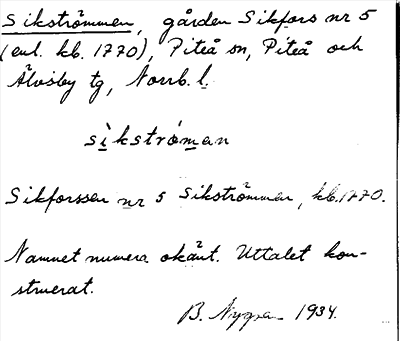 Sikströmmen, gården Sikfors nr 5
(enl. kb. 1770), Piteå sn, Piteå och
Älvsby tg, Norrb. l.
sìkstróman
Sikforssen nr 5 Sikströmmen, kb. 1770.
Namnet numera okänt. Uttalet kon-
struerat.
B. Nygren 1934.